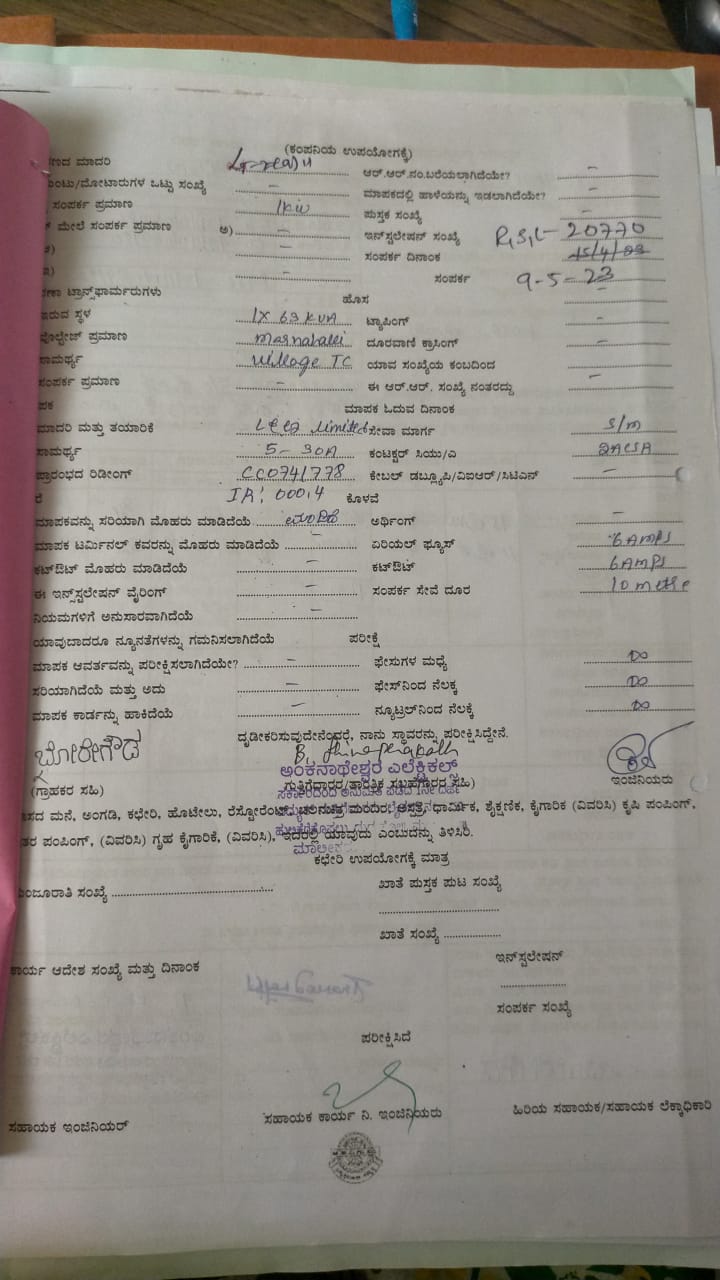 (ಕಂಪನಿಯ ಉಪಯೋಗಕ್ಕೆ)
ಣದ ಮಾದರಿ ಆರ್.ಆರ್.ನಂ.ಬರೆಯಲಾಗಿದೆಯೇ? –
ಯಿಂಟು/ಮೋಟಾರುಗಳ ಒಟ್ಟು ಸಂಖ್ಯೆ – ಮಾಪಕದಲ್ಲಿ ಹಾಳೆಯನ್ನು ಇಡಲಾಗಿದೆಯೇ? –
ಸಂಪರ್ಕ ಪ್ರಮಾಣ 1kw ಪುಸ್ತಕ ಸಂಖ್ಯೆ –
ಮೇಲೆ ಸಂಪರ್ಕ ಪ್ರಮಾಣ ಅ) – ಇನ್‌ಸ್ಟಲೇಷನ್ ಸಂಖ್ಯೆ R,S,L- 20770
– ಸಂಪರ್ಕ ದಿನಾಂಕ 15/4/23
– ಸಂಪರ್ಕ 9-5-23
ಟ್ರಾನ್ಸ್‌ಫಾರ್ಮರುಗಳು ಹೊಸ
ಇರುವ ಸ್ಥಳ 1X 63 KVA ಟ್ಯಾಪಿಂಗ್ –
ವೋಲ್ಟೇಜ್ ಪ್ರಮಾಣ ದೂರವಾಣಿ ಕ್ರಾಸಿಂಗ್ –
ಸಾಮರ್ಥ್ಯ Village TC ಯಾವ ಸಂಖ್ಯೆಯ ಕಂಬದಿಂದ
ಸಂಪರ್ಕ ಪ್ರಮಾಣ – ಈ ಆರ್.ಆರ್. ಸಂಖ್ಯೆ ನಂತರದ್ದು –
ಪಕ ಮಾಪಕ ಓದುವ ದಿನಾಂಕ
ಮಾದರಿ ಮತ್ತು ತಯಾರಿಕೆ Limited ಸೇವಾ ಮಾರ್ಗ S/m
ಸಾಮರ್ಥ್ಯ 5-30A ಕಂಟಕ್ಟರ್ ಸಿಯು/ಎ
ಪ್ರಾರಂಭದ ರಿಡೀಂಗ್ CC0741778 ಕೇಬಲ್ ಡಬ್ಲ್ಯೂಪಿ/ವಿಐಆರ್/ಸಿಟಿಎಸ್ –
ರೆ IR: 000.4 ಕೊಳವೆ
ಮಾಪಕವನ್ನು ಸರಿಯಾಗಿ ಮೊಹರು ಮಾಡಿದೆಯೆ ಮಾಡಿದೆ ಅರ್ಥಿಂಗ್ –
ಮಾಪಕ ಟರ್ಮಿನಲ್ ಕವರನ್ನು ಮೊಹರು ಮಾಡಿದೆಯೆ – ಏರಿಯಲ್ ಫ್ಯೂಸ್ 6 AMPS
ಕಟ್‌ಔಟ್ ಮೊಹರು ಮಾಡಿದೆಯೆ – ಕಟ್‌ಔಟ್ 6 AMPS
ಈ ಇನ್ಸ್ಟಲೇಷನ್ ವೈರಿಂಗ್ – ಸಂಪರ್ಕ ಸೇವೆ ದೂರ 10 metre
ನಿಯಮಗಳಿಗೆ ಅನುಸಾರವಾಗಿದೆಯೆ –
ಯಾವುದಾದರೂ ನ್ಯೂನತೆಗಳನ್ನು ಗಮನಿಸಲಾಗಿದೆಯೆ ಪರೀಕ್ಷೆ
ಮಾಪಕ ಆವರ್ತವನ್ನು ಪರೀಕ್ಷಿಸಲಾಗಿದೆಯೇ? – ಫೇಸುಗಳ ಮಧ್ಯೆ ∞
ಸರಿಯಾಗಿದೆಯೆ ಮತ್ತು ಅದು – ಫೇಸ್‌ನಿಂದ ನೆಲಕ್ಕೆ ∞
ಮಾಪಕ ಕಾರ್ಡನ್ನು ಹಾಕಿದೆಯೆ – ನ್ಯೂಟ್ರಲ್‌ನಿಂದ ನೆಲಕ್ಕೆ ∞
ದೃಢೀಕರಿಸುವುದೇನೆಂದರೆ, ನಾನು ಸ್ಥಾವರನ್ನು ಪರೀಕ್ಷಿಸಿದ್ದೇನೆ.
ಬೋರೇಗೌಡ
ಅಂಕನಾಥೇಶ್ವರ ಎಲೆಕ್ಟ್ರಿಕಲ್ಸ್
(ಗ್ರಾಹಕರ ಸಹಿ) ಗುತ್ತಿಗೆದಾರರ/ತಾಂತ್ರಿಕ ಸಲಹೆಗಾರರ ಸಹಿ) ಇಂಜಿನಿಯರು
ಸದ ಮನೆ, ಅಂಗಡಿ, ಕಛೇರಿ, ಹೊಟೇಲು, ರೆಸ್ಟೋರೆಂಟ್, ಚಲನಚಿತ್ರ ಮಂದಿರ, ಆಸ್ಪತ್ರೆ, ಧಾರ್ಮಿಕ, ಶೈಕ್ಷಣಿಕ, ಕೈಗಾರಿಕ (ವಿವರಿಸಿ) ಕೃಷಿ ಪಂಪಿಂಗ್,
ತರ ಪಂಪಿಂಗ್, (ವಿವರಿಸಿ) ಗೃಹ ಕೈಗಾರಿಕೆ, (ವಿವರಿಸಿ), ಇದರಲ್ಲಿ ಯಾವುದು ಎಂಬುದನ್ನು ತಿಳಿಸಿರಿ.
ಕಛೇರಿ ಉಪಯೋಗಕ್ಕೆ ಮಾತ್ರ
ಮಂಜೂರಾತಿ ಸಂಖ್ಯೆ ಖಾತೆ ಪುಸ್ತಕ ಪುಟ ಸಂಖ್ಯೆ
ಖಾತೆ ಸಂಖ್ಯೆ
ಕಾರ್ಯ ಆದೇಶ ಸಂಖ್ಯೆ ಮತ್ತು ದಿನಾಂಕ ಇನ್‌ಸ್ಟಲೇಷನ್
ಸಂಪರ್ಕ ಸಂಖ್ಯೆ
ಪರೀಕ್ಷಿಸಿದೆ
ಸಹಾಯಕ ಇಂಜಿನಿಯರ್ ಸಹಾಯಕ ಕಾರ್ಯ ನಿ. ಇಂಜಿನಿಯರು ಹಿರಿಯ ಸಹಾಯಕ/ಸಹಾಯಕ ಲೆಕ್ಕಾಧಿಕಾರಿ